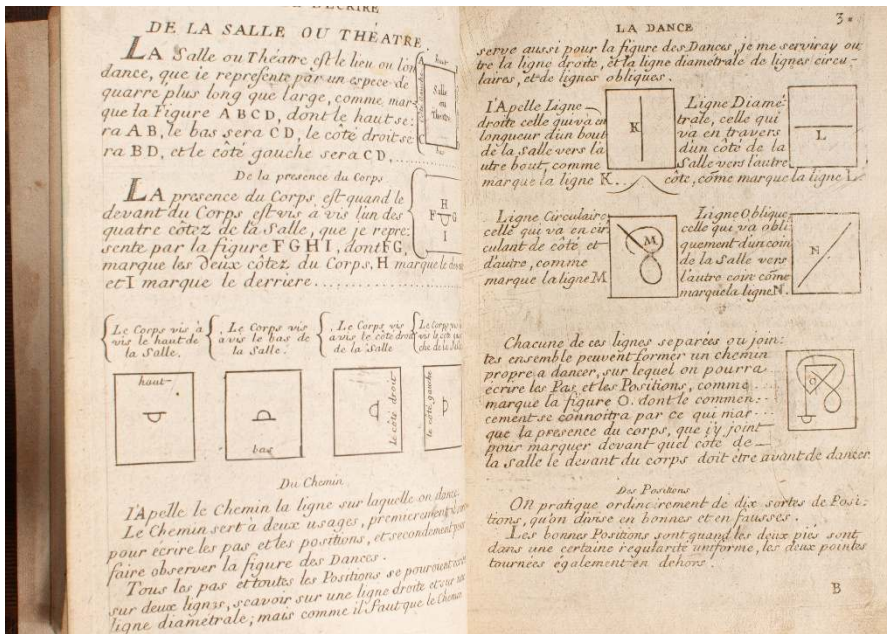 DÉCRIRE
DE LA SALLE OU THÉATRE.
LA Salle ou Théatre est le lieu ou l'on
dance, que ie represente par un espece de
quarre plus long que large, comme mar-
que la Figure A B C D, dont le haut se-
ra A B, le bas sera C D, le côté droit se-
ra B D, et le côté gauche sera C D,
haut
Salle
ou
Théatre
bas
De la presence du Corps
LA presence du Corps, est quand le
devant du Corps est vis a vis l'un des
quatre côtez de la Salle, que je repre-
sente par la figure F G H I, dont F G,
marque les deux côtez du Corps, H marque le
et I marque le derriere
H
F G
I
Le Corps vis à
vis le haut de
la Salle.
Le Corps vis
a vis le bas de
la Salle.
Le Corps vis
a vis le côté droit
de la Salle
Le Corps
haut
bas
le côté droit
le côté gauche
Du Chemin
I'Apelle le Chemin la ligne sur laquelle on dance.
Le Chemin sert a deux usages, premierement
pour ecrire les pas et les positions, et secondement pour
faire observer la figure des Dances.
Tous les pas et toutes les Positions se pouroient
sur deux lignes, scavoir sur une ligne droite et sur une
ligne diamétrale; mais comme il faut que le Chemin
LA DANCE
3.
serve aussi pour la figure des Dances, je me serviray ou
tre la ligne droite, et la ligne diamétrale de lignes circu-
laires, et de lignes obliques.
I'Apelle Ligne
droite celle qui va en
longueur d'un bout
de la Salle vers l'a
utre bout, comme
marque la ligne K
K
Ligne Diamé-
trale, celle qui
va en travers
d'un côté de la
Salle vers l'autre
côte, côme marque la ligne L
L
Ligne Circulaire,
celle qui va en cir
culant de côté et
d'autre, comme
marque la ligne M
M
Ligne Oblique,
celle qui va obli
quement d'un coin
de la Salle vers
l'autre coin côme
marque la ligne N.
N
Chacune de ces lignes separées ou join-
tes ensemble peuvent former un chemin
propre a dancer, sur lequel on pourra
écrire les Pas et les Positions, comme
marque la figure O. dont le commen-
cement se connoîtra par ce qui mar-
que la presence du corps, que i'y joint
pour marquer devant quel côté de
la Salle le devant du corps doit être avant de dancer.
O
Des Positions
On pratique ordinairement de dix sortes de Posi-
tions, qu'on divise en bonnes et en fausses.
Les bonnes Positions sont quand les deux piés sont
dans une certaine regularité uniforme, les deux pointes
tournées également en dehors.
B